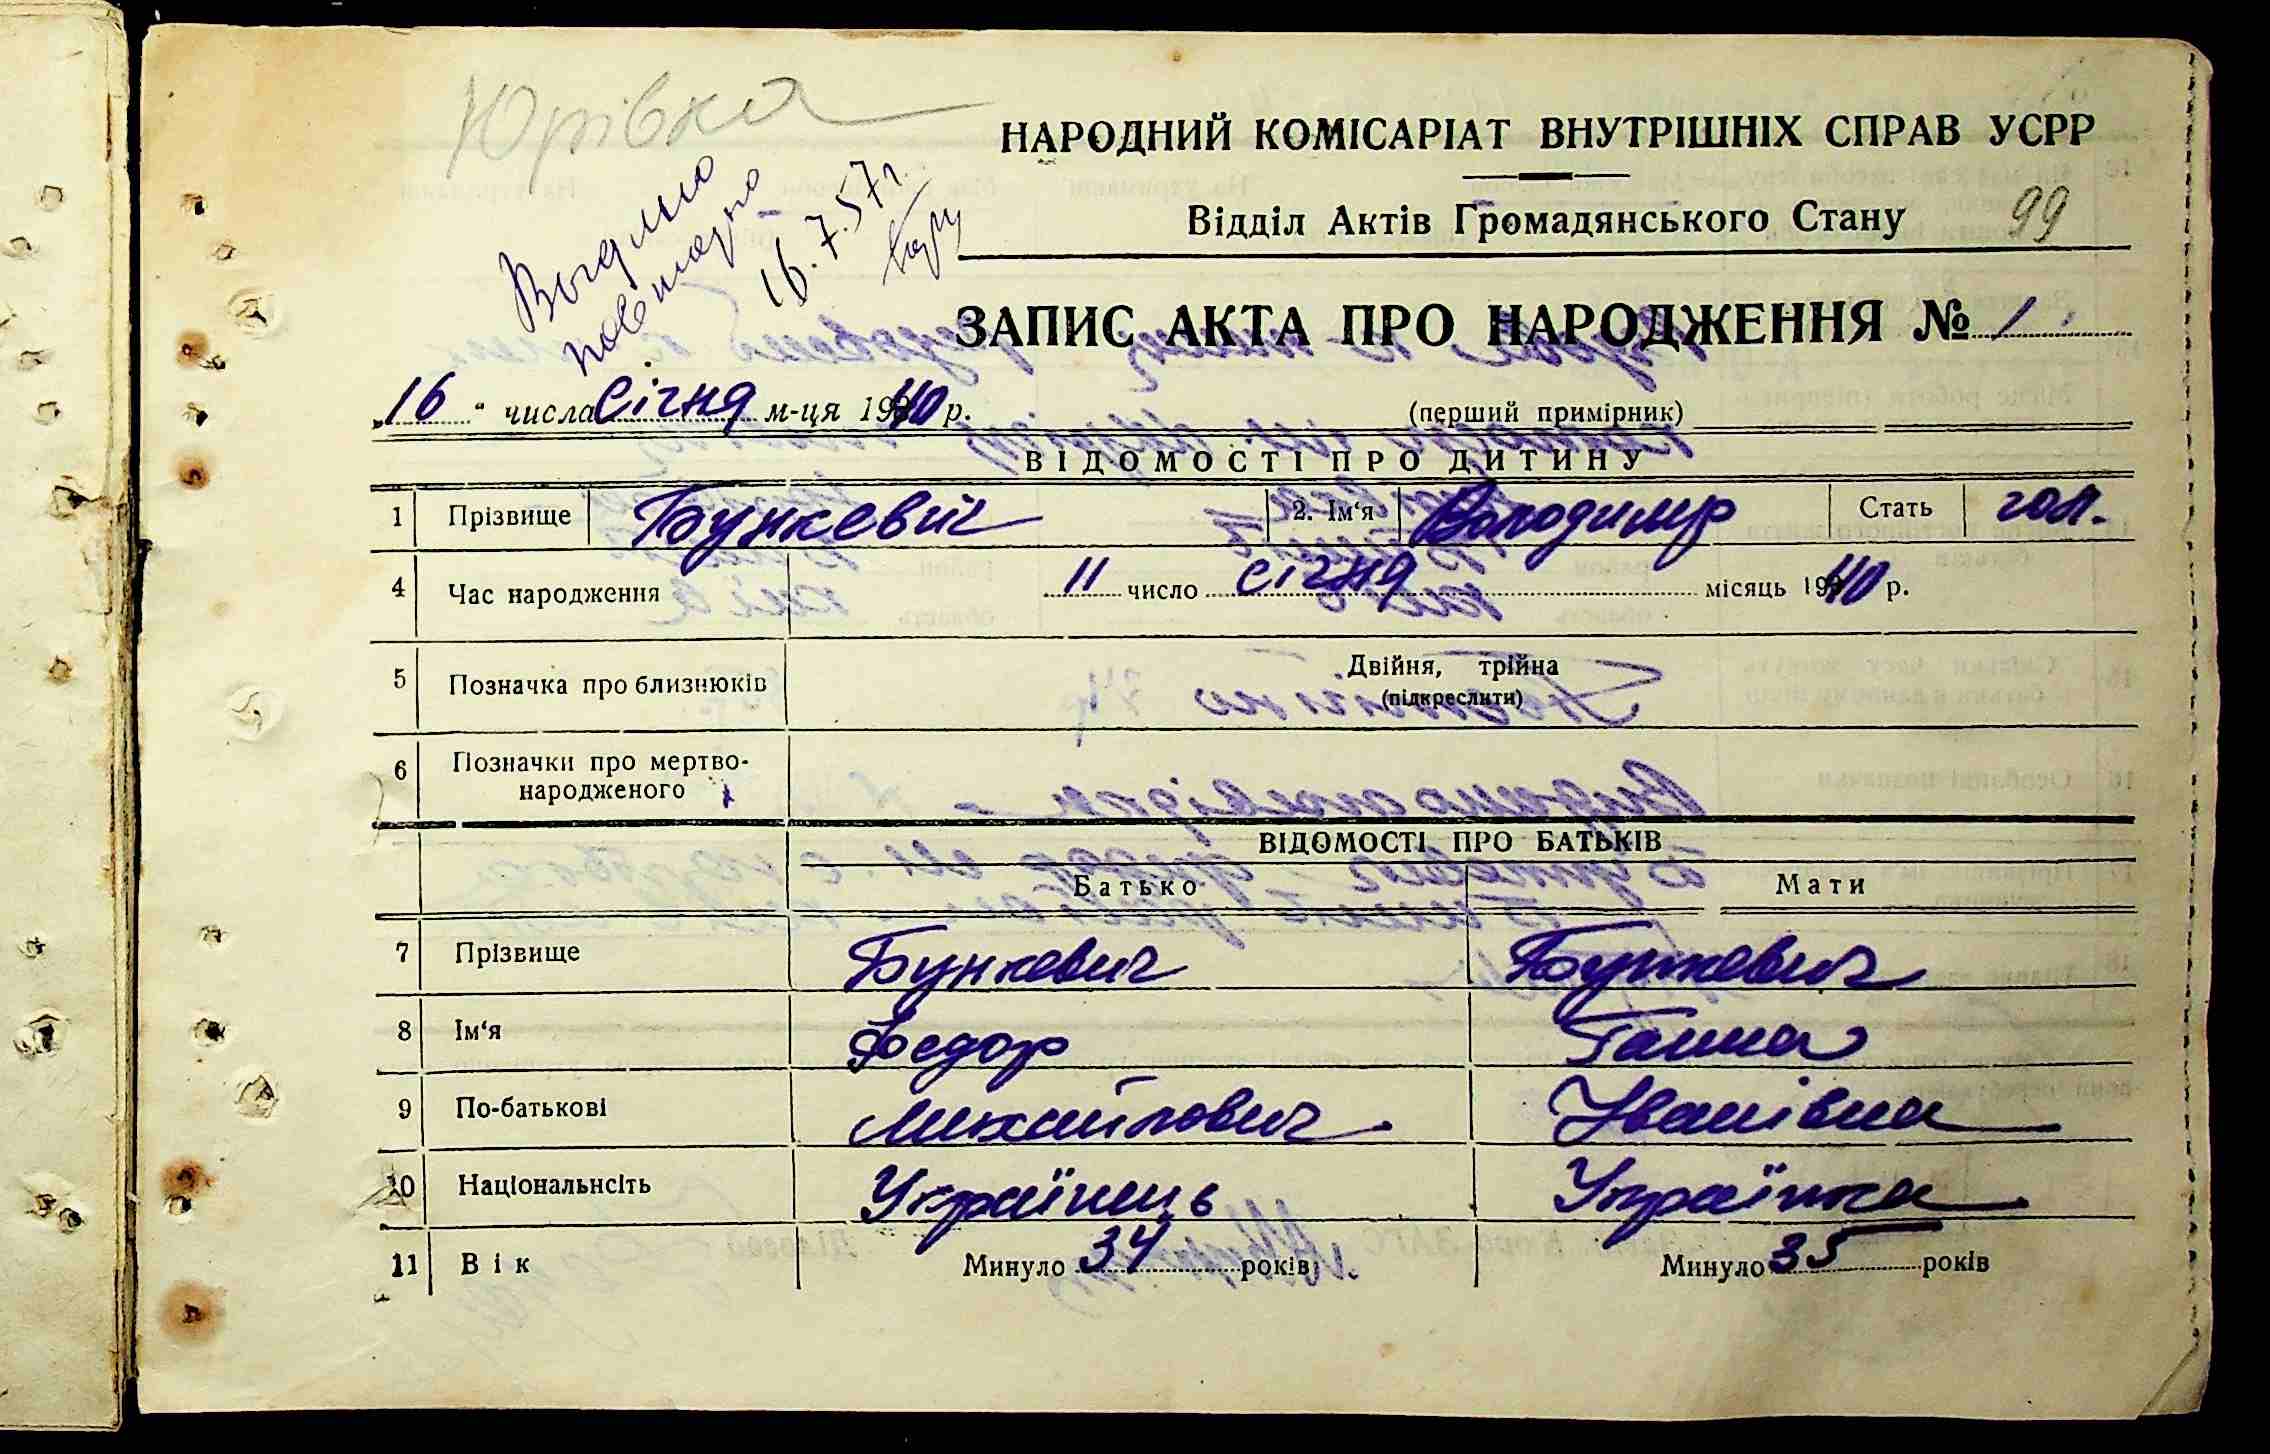 Юрівка
Выдано
повторно
16.7.57г.
НАРОДНИЙ КОМІСАРІАТ ВНУТРІШНІХ СПРАВ УСРР
Відділ Актів Громадянського Стану 99
ЗАПИС АКТА ПРО НАРОДЖЕННЯ № 1
„16“ числа січня м-ця 1940 р. (перший примірник)
ВІДОМОСТІ ПРО ДИТИНУ
1 Прізвище Бункевич 2. Ім'я Володимир Стать чол.
4 Час народження 11 число січня місяць 1940 р.
5 Позначка про близнюків Двійня, трійна
(підкреслити)
6 Позначки про мертво-
народженого
ВІДОМОСТІ ПРО БАТЬКІВ
Батько Мати
7 Прізвище Бункевич Бункевич
8 Ім'я Федор Ганна
9 По-батькові Михайлович Іванівна
10 Національнсіть Українець Українка
11 Вік Минуло 34 років Минуло 35 років